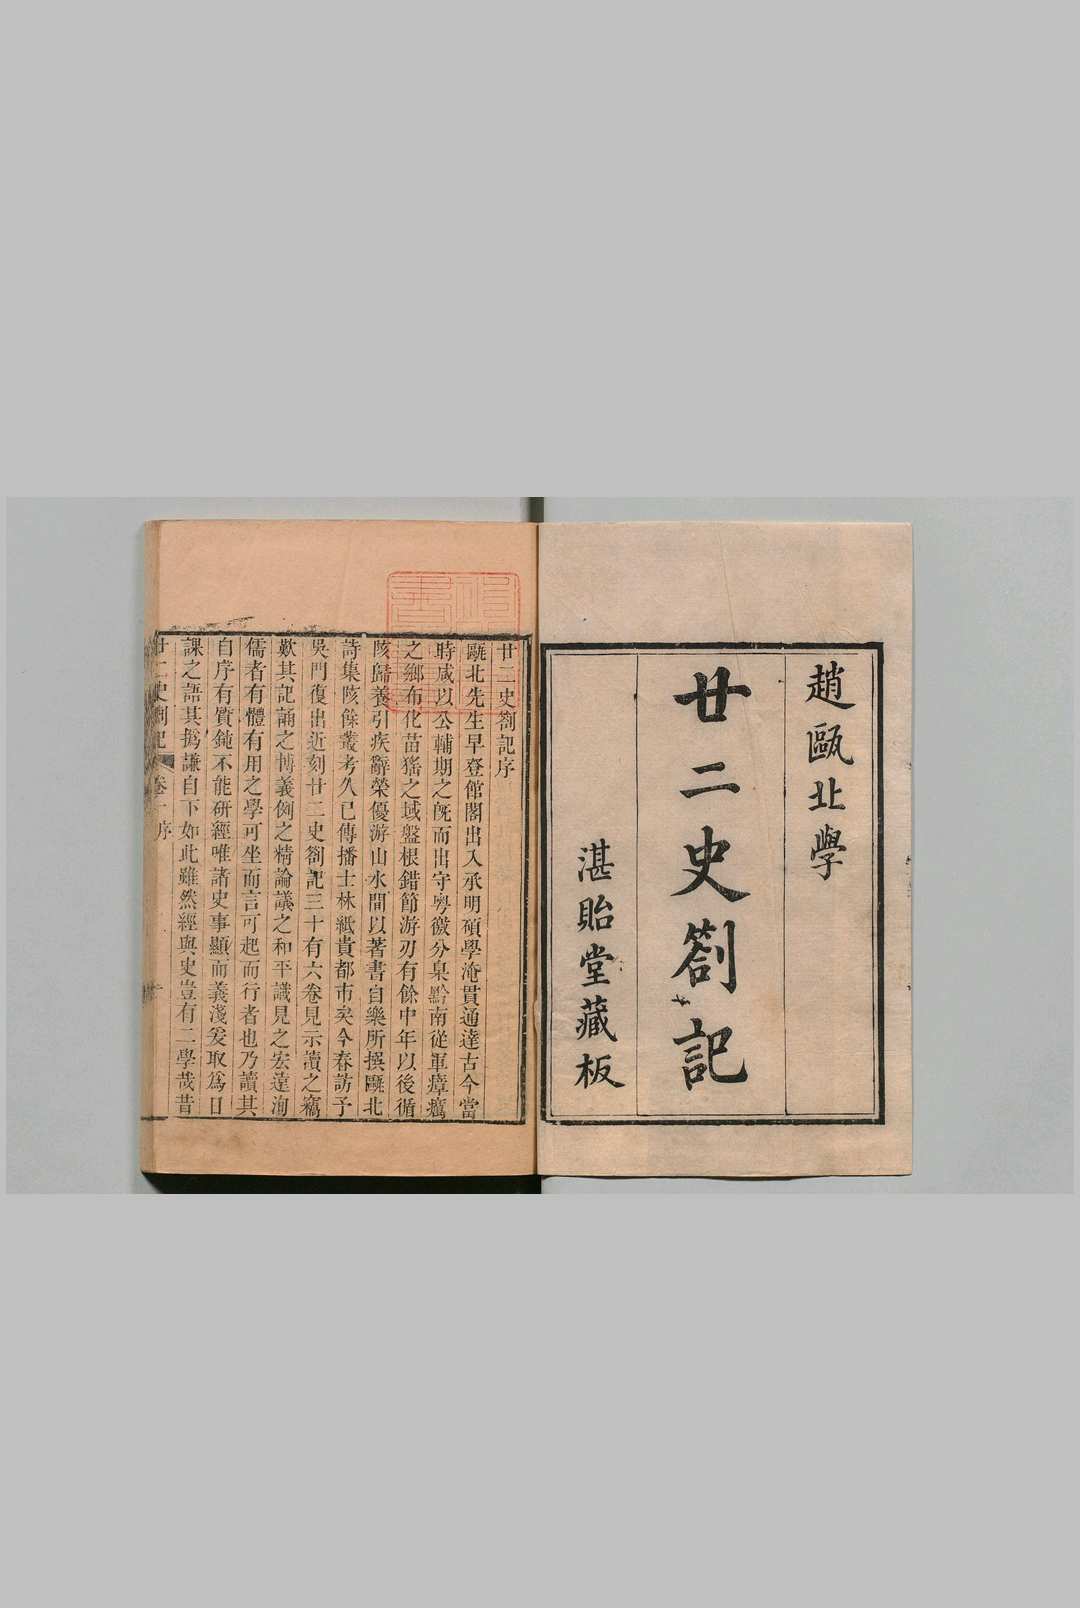 趙甌北學
廿二史劄記
湛貽堂藏板
廿二史劄記序
甌北先生早登館閣出入承明碩學淹貫通達古今當
時咸以公輔期之旣而出守粤徼分臬黔南從軍瘴癘
之鄉布化苗猺之域盤根錯節游刃有餘中年以後循
陔歸養引疾辭榮優游山水間以著書自樂所撰甌北
詩集陔餘叢考久已傳播士林紙貴都市矣今春訪予
吳門復出近刻廿二史劄記三十有六卷見示讀之竊
歎其記誦之博義例之精論議之和平識見之宏遠洵
儒者有體有用之學可坐而言可起而行者也乃讀其
自序有質鈍不能研經唯諸史事顯而義淺爰取爲日
課之語其撝謙自下如此雖然經與史豈有二學哉昔
廿二史劄記 卷一序